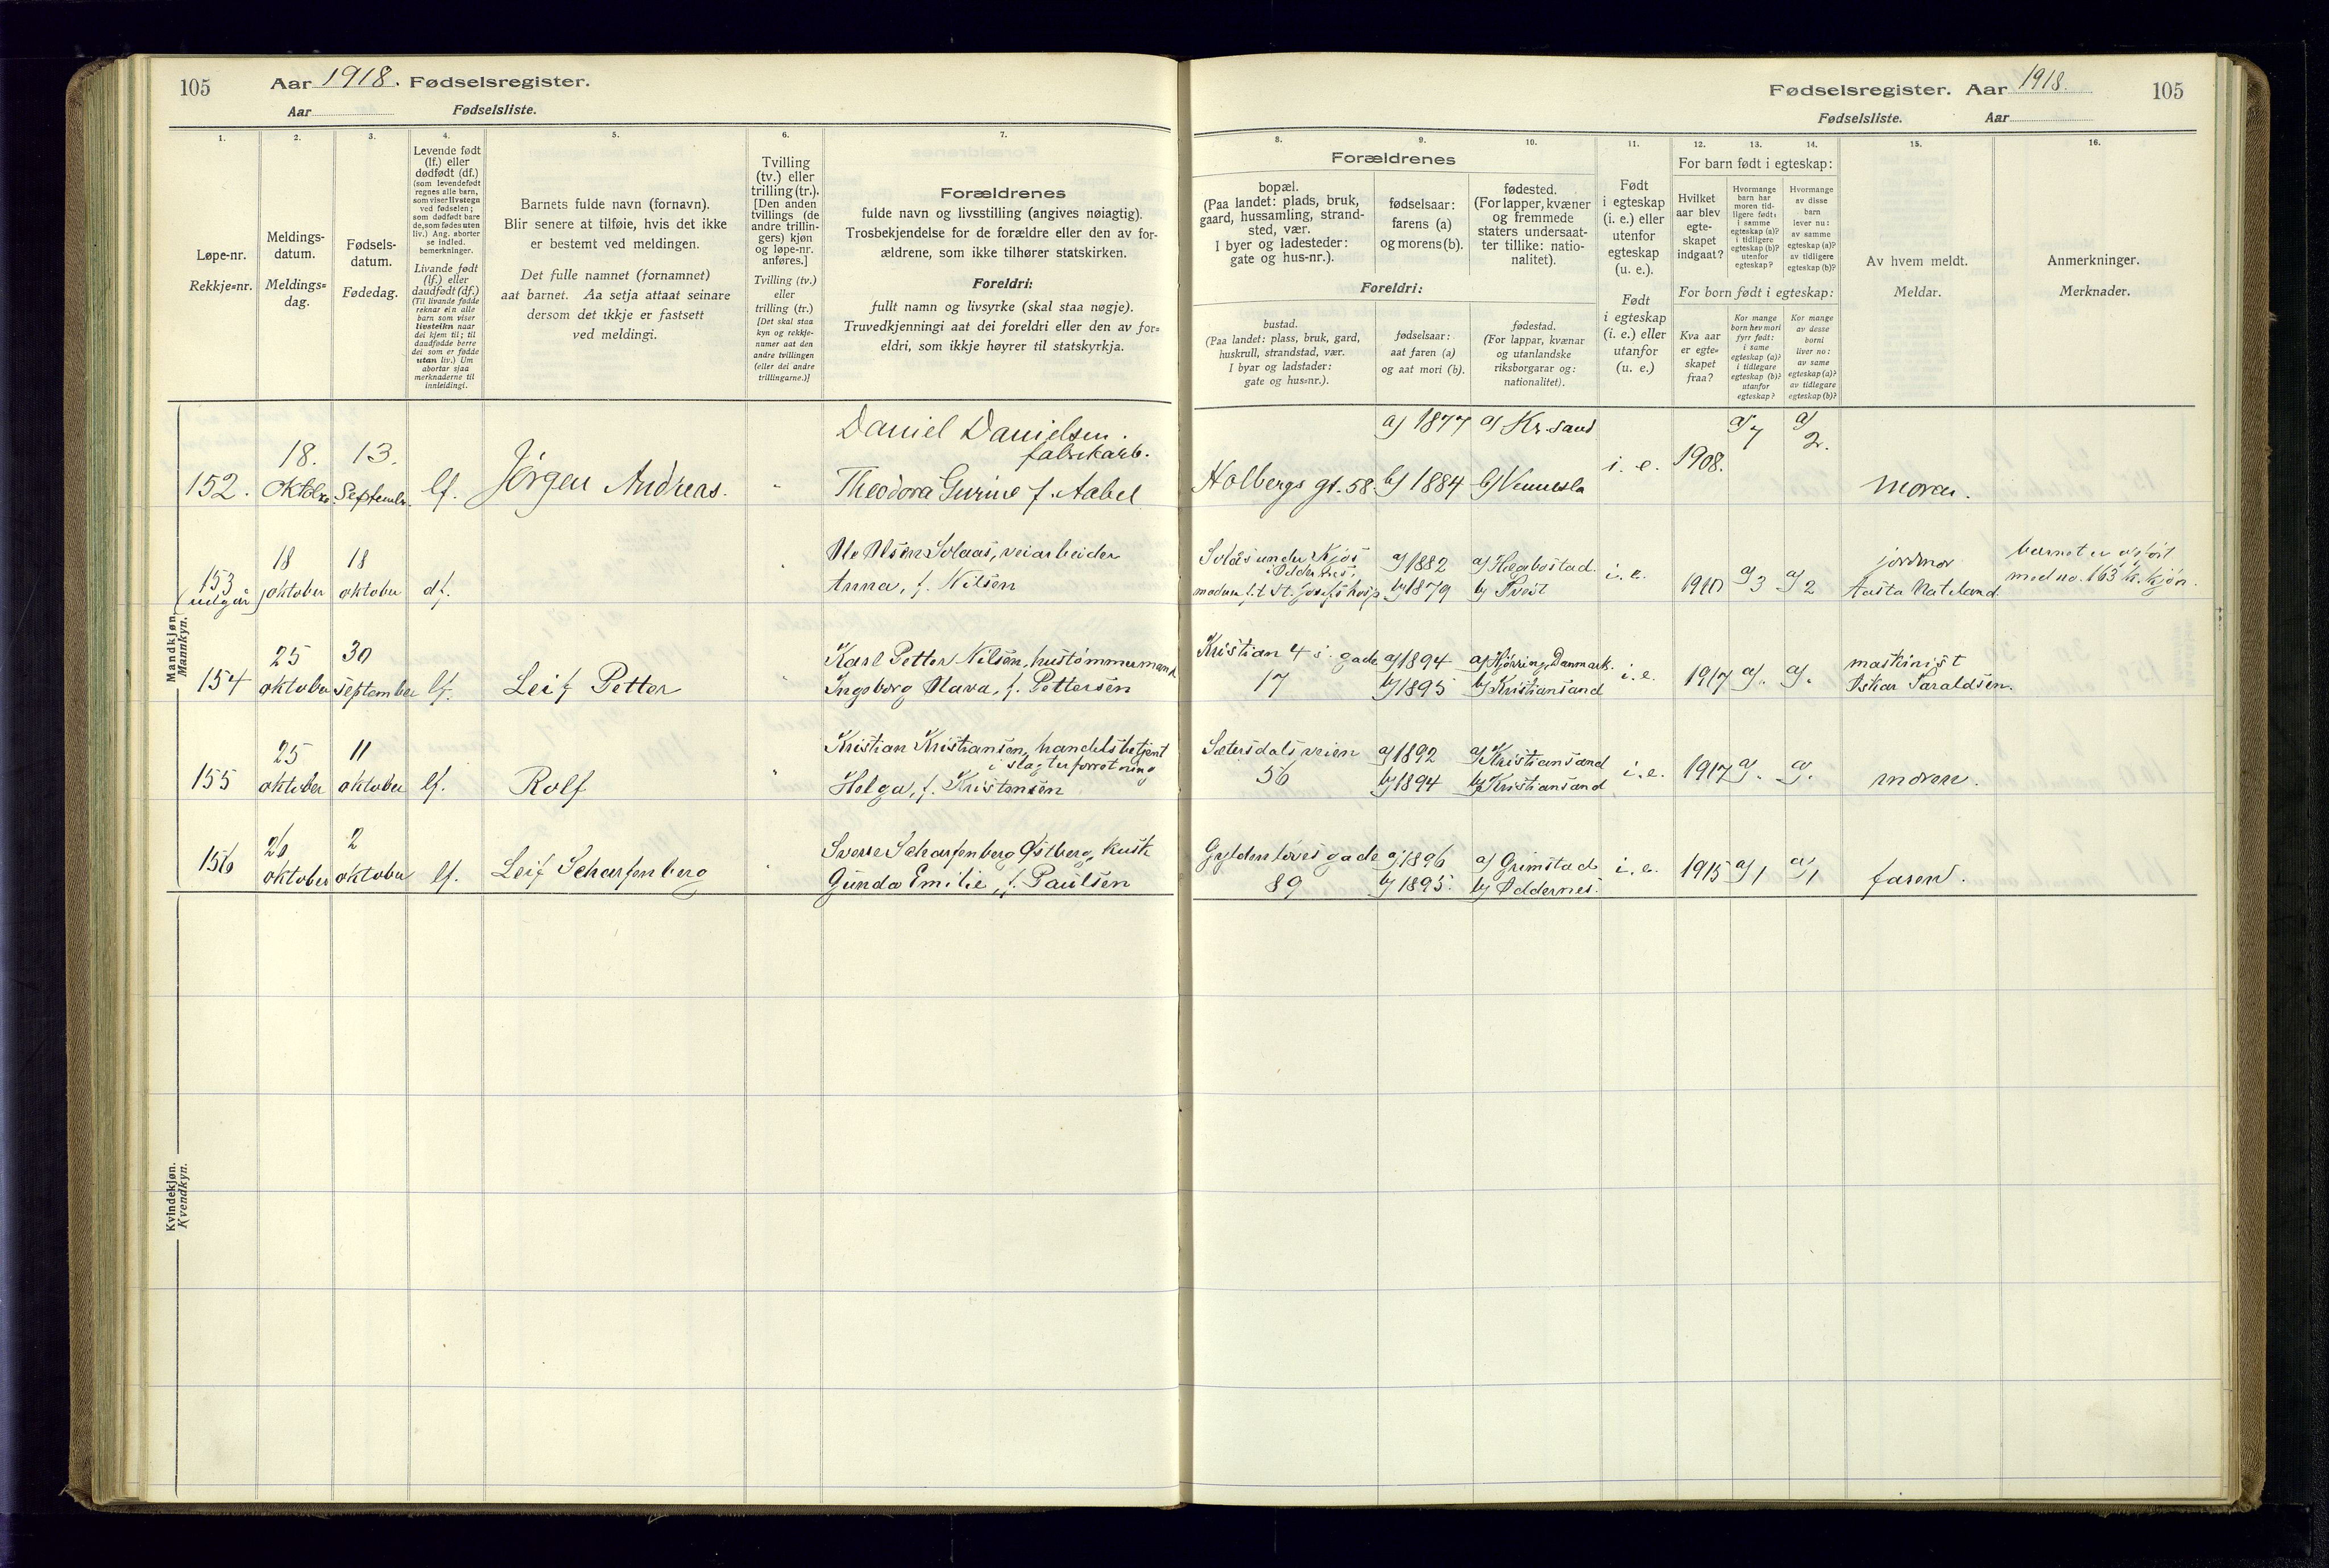 105
Aar 1918. Fødselsregister.
Aar Fødselsliste.
1.
2.
3.
4.
5.
6.
7.
Løpe-nr.
Rekkje-nr.
Meldings-
datum.
Meldings-
dag.
Fødsels-
datum.
Fødedag.
Levende født
(lf.) eller
dødfødt (df.)
(som levendefødt
regnes alle barn,
som viser livstegn
ved fødselen;
som dødfødt bare
de, som fødes uten
liv.) Ang. aborter
se indled.
bemerkninger.
Livande født
(lf.) eller
daudfødt (df.)
(Til livande fødde
reknar ein alle
barn som viser
livsteikn naar
dei kjem til; til
daudfødde berre
dei som er fødde
utan liv.) Um
abortar sjaa
merknaderne til
innleidingi.
Barnets fulde navn (fornavn).
Blir senere at tilføie, hvis det ikke
er bestemt ved meldingen.
Det fulle namnet (fornamnet)
aat barnet. Aa setja attaat seinare
dersom det ikkje er fastsett
ved meldingi.
Tvilling
(tv.) eller
trilling (tr.).
[Den anden
tvillings (de
andre trillin-
gers) kjøn
og løpe-nr.
anføres.]
Tvilling (tv.)
eller
trilling (tr.)
[Det skal staa
kyn og rekkje-
numer aat den
andre tvillingen
(eller dei andre
trillingarne.)]
Forældrenes
fulde navn og livsstilling (angives nøiagtig).
Trosbekjendelse for de forældre eller den av for-
ældrene, som ikke tilhører statskirken.
Foreldri:
fullt namn og livsyrke (skal staa nøgje).
Truvedkjenningi aat dei foreldri eller den av for-
eldri, som ikkje høyrer til statskyrkja.
Mandkjøn.
Mannkyn.
152.
18.
Oktobr.
13.
Septembr.
lf.
Jörgen Andreas.
"
Daniel Danielsen.
fabrikarb.
Theodora Gurine f. Aabel
153
(udgår)
18
oktober
18
oktober
df.
"
Ole Olsen Solaas, veiarbeider
Anna, f. Nilsen
154
25
oktober
30
september
lf.
Leif Petter
"
Karl Petter Nilsen, hustømmermand
Ingeborg Olava, f. Pettersen
155
25
oktober
11
oktober
lf.
Rolf
"
Kristian Kristiansen, handelsbetjent
i slagterforretning
Helga, f. Kristensen
156
26
oktober
2
oktober
lf.
Leif Scharfenberg
"
Sverre Scharfenberg Østberg, kusk
Gunda Emilie, f. Paulsen
Kvindekjøn.
Kvendkyn.
Fødselsregister. Aar 1918.
105
Fødselsliste. Aar
8.
9.
10.
11.
12.
13.
14.
15.
16.
Forældrenes
bopæl.
(Paa landet: plads, bruk,
gaard, hussamling, strand-
sted, vær.
I byer og ladesteder:
gate og hus-nr.).
fødselsaar:
farens (a)
og morens (b).
fødested.
(For lapper, kvæner
og fremmede
staters undersaat-
ter tillike: natio-
nalitet).
Foreldri:
bustad.
(Paa landet: plass, bruk, gard,
huskrull, strandstad, vær.
I byar og ladstader:
gate og hus-nr.).
fødselsaar:
aat faren (a)
og aat mori (b).
fødestad.
(For lappar, kvænar
og utanlandske
riksborgarar og:
nationalitet).
Født
i egteskap
(i. e.) eller
utenfor
egteskap
(u. e.).
Født
i egteskap
(i. e.) eller
utanfor
(u. e.)
For barn født i egteskap:
Hvilket
aar blev
egte-
skapet
indgaat?
Hvormange
barn har
moren tid-
ligere født:
i samme
egteskap (a)?
i tidligere
egteskap (b)?
utenfor
egteskap?
Hvormange
av disse
barn
lever nu:
av samme
egteskap (a)?
av tidligere
egteskap (b)?
For born født i egteskap:
Kva aar
er egte-
skapet
fraa?
Kor mange
born hev mori
fyrr født:
i same
egteskap (a)?
i tidlegare
egteskap (b)?
utanfor
egteskap?
Kor mange
av desse
borni
liver no:
av same
egteskap (a)?
av tidlegare
egteskap (b)?
Av hvem meldt.
Meldar.
Anmerkninger.
Merknader.
Holbergs gt. 58.
a) 1877
b) 1884
a) Kr.sand
b) Vennesla
i. e.
1908.
a) 7
a) 2.
moren.
Solås under Kjos
i Oddernes,
moderen f.t. St. Josefs hosp.
a) 1882
b) 1879
a) Hægebostad
b) Tveit
i. e.
1910
a) 3
a) 2
jordmor
Aasta Nateland
barnet er opført
med no. 163 k. kjøn.
Kristian 4 s. gade
17
a) 1894
b) 1895
a) Hjørring, Danmark.
b) Kristiansand
i. e.
1917
a) .
a) .
maskinist
Oskar Taraldsen.
Sætersdalsveien
56
a) 1892
b) 1894
a) Kristiansand
b) Kristiansand
i. e.
1917
a) .
a) .
moren.
Gyldenløves gade
89
a) 1896
b) 1895.
a) Grimstad
b) Oddernes.
i. e.
1915
a) 1
a) 1
faren.